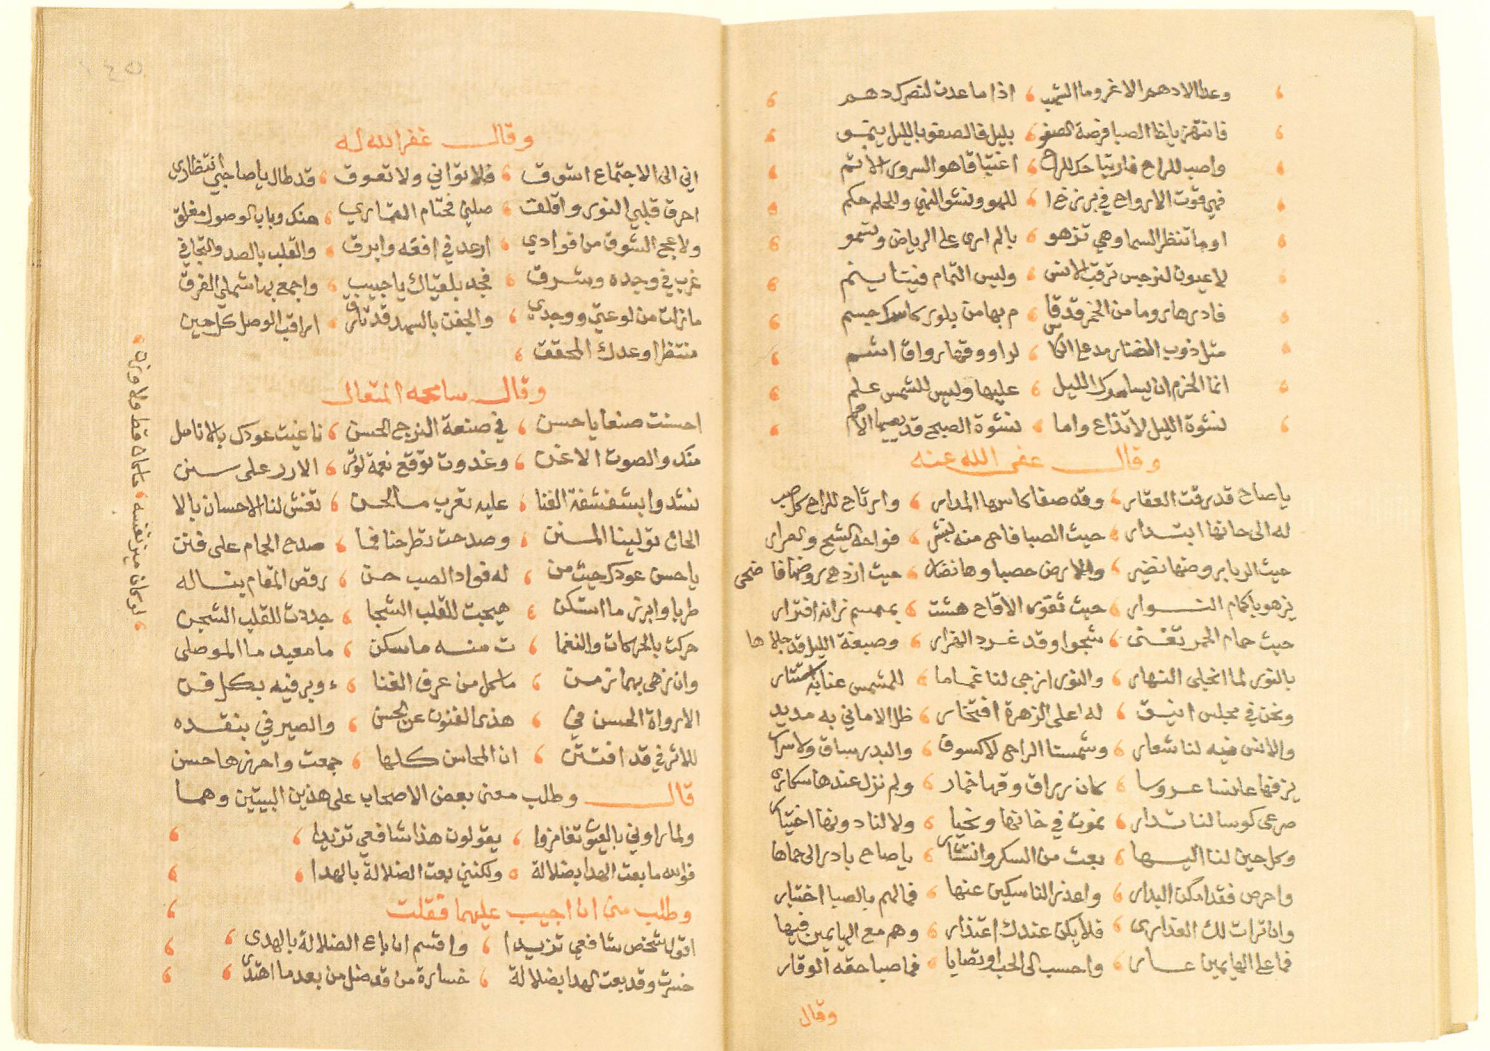 وعدا الادهم الاغر وما الشهب ، اذا ما عدت لنصرك دهم ،
فانتهز يا اخا الصبا فرصة الصفو ، بليل فالصفو بالليل ينمو ،
واصب للراح فارتياحك للراح ، اغتباقا هو السرور الاتم ،
فهي قوت الارواح في ، للهو ونشو النهى والحلم حكم ،
او ما تنظر السما وهي تزهو ، بالم ارى على الرياض وتسمو
لا عيون لنرجس ترقب الانس ، وليس التمام فينا ينم
فادرها روما من الخمر قد قا ، م بها من بلور كاسك جسم
مثل ذوب النضار مدها الكاس ، لرا ووقها رواق اشم
انما الحزم ان يسامرك الليل ، عليها وليس للشمس علم
نشوة الليل لا تذاع واما ، نشوة الصبح قد
وقال عفى الله عنه
يا صاح قد رقت العقار ، وقد صفا كاسها المدار ، وارتاح للراح كل صب
له الى حانها ابتدار ، حيث الصبا فاح منه نشر ، فواحه الشيح والعرار
حيث الربا بروضها نضير ، والارض حصباوها نضار ، حيث ازدهى روضها فاضحى
يزهو باكمام النوار ، حيث ثغور الاقاح هشت ، بمبسم زانه افترار
حيث حمام الحمى تغنى ، شجوا وقد غرد الهزار ، وصبغة الليل قد جلاها
بالنور لما انجلى النهار ، والنور ازجى لنا غماما ، للشمس عنا به استتار
ونحن في مجلس انيق ، له اعلى الزهرة افتخار ، ظل الاماني به مديد
والانس فيه لنا شعار ، وشمسنا الراح لا كسوف ، والبدر ساق ولا سرار
يزفها عانسا عروسا ، كان رياق وقها خمار ، ولم نزل عندها سكارى
صرعى كوسا لنا تدار ، نموت في حانها ونحيا ، ولا لنا دونها اختيار
وكل حين لنا اليها ، بعث من السكر وانتشار ، يا صاح بادر الى حماها
واحرص فقد امكن البدار ، واعذر الناسكين عنها ، فما لهم بالصبا اختبار
وان تراءت لك العذارى ، فلا يكن عندك اعتذار ، وهم مع الهايمين فيها
فما على الهايمين عار ، واحسب الى الحب او تصابا ، فما صبا حقه الوقار
وقال
وقال غفر الله له
اني الى الاجتماع اشوق ، فلا تواني ولا تعوق ، قد طال يا صاحبي انتظاري
احرق قلبي النوى واقلق ، صلني فختام ، عنك وباب الوصول مغلق
ولاعج الشوق من فوادي ، ارعد في افقه وابرق ، والقلب بالصد والتجافي
غرب في وجده وشرق ، فجد بلقياك يا حبيب ، واجمع بها شملي المفرق
ما زلت من لوعتي ووجدي ، والجفن بالسهد قد تارق ، اراقب الوصل كل حين
منتظرا وعدك المحقق ،
وقال سامحه المتعالى
احسنت صنعا يا حسن ، في صنعة النزج الحسن ، ناغيت عودك بالانامل
منك والصوت الاغن ، وغدوت توقع نغمة لوتر ، الارر على سنن
نشدوا بشفشفة الغنا ، عليه تغرب ما لحن ، تغش لنا الاحسان بالا
لحان تولينا المنن ، وصدحت تطرحنا فما ، صدح الحمام على فنن
يا حسن عودك حيث من ، له فواد الصب حن ، رقص المقام بنا له
طربا وابرز ما استكن ، هيجت للقلب الشجا ، جددت للقلب الشجن
حركت بالحركات والنغما ، ت منه ما سكن ، ما معيد ما الموصلي
وان زهى بهما زمن ، ما كل من عرف الغنا ، ء ويرفيه بكل فن
الا رواة الحسن في ، هذي الفنون عن الحسن ، والصيرفي بنقده
للاثر في قد افتتن ، ان المحاسن كلها ، جمعت واحرزها حسن
قال وطلب معنى بعض الاصحاب على هذين البيتين وهما
ولما راوني بالعيون تغامزوا ، يقولون هذا شافعي تزيدا ، ،
فوالله ما بعت الهدا بضلالة ، ولكنني بعت الضلالة بالهدا ، ،
وطلب مني ان اجيب عليهما فقلت ،
اقول لشخص شافعي تزيدا ، واقسم ان باع الضلالة بالهدى ، ،
خسرت وقد بعت الهدا بضلالة ، خسارة من قد ضل من بعد ما اهتدى ، ،
، لو كان ميز نفسه ، ما خان قط ولا وزن ،